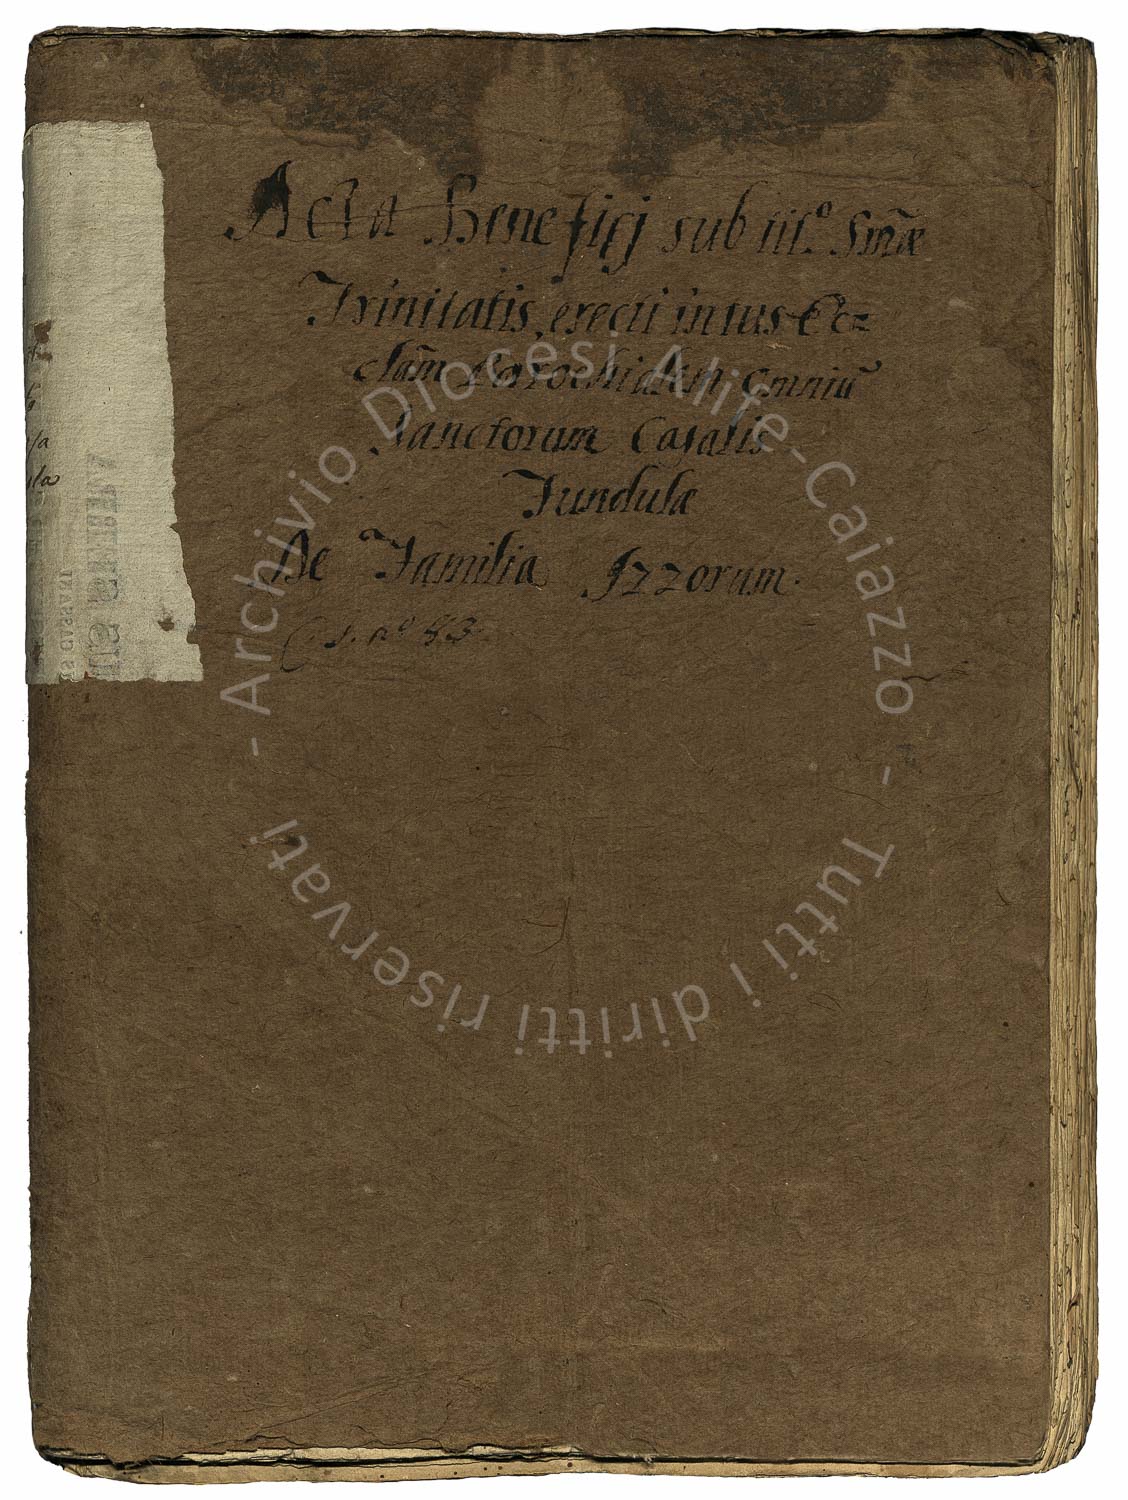 Acta Beneficij sub tit.º Smæ
Trinitatis, erecti intus Ecc=
clãm Parochialem Omniũ
Sanctorum Casalis
Fundulæ
De Familia Izzorum.
C. s. nº 83
la
- Archivio Diocesi Alife-Caiazzo -
Tutti i diritti riservati